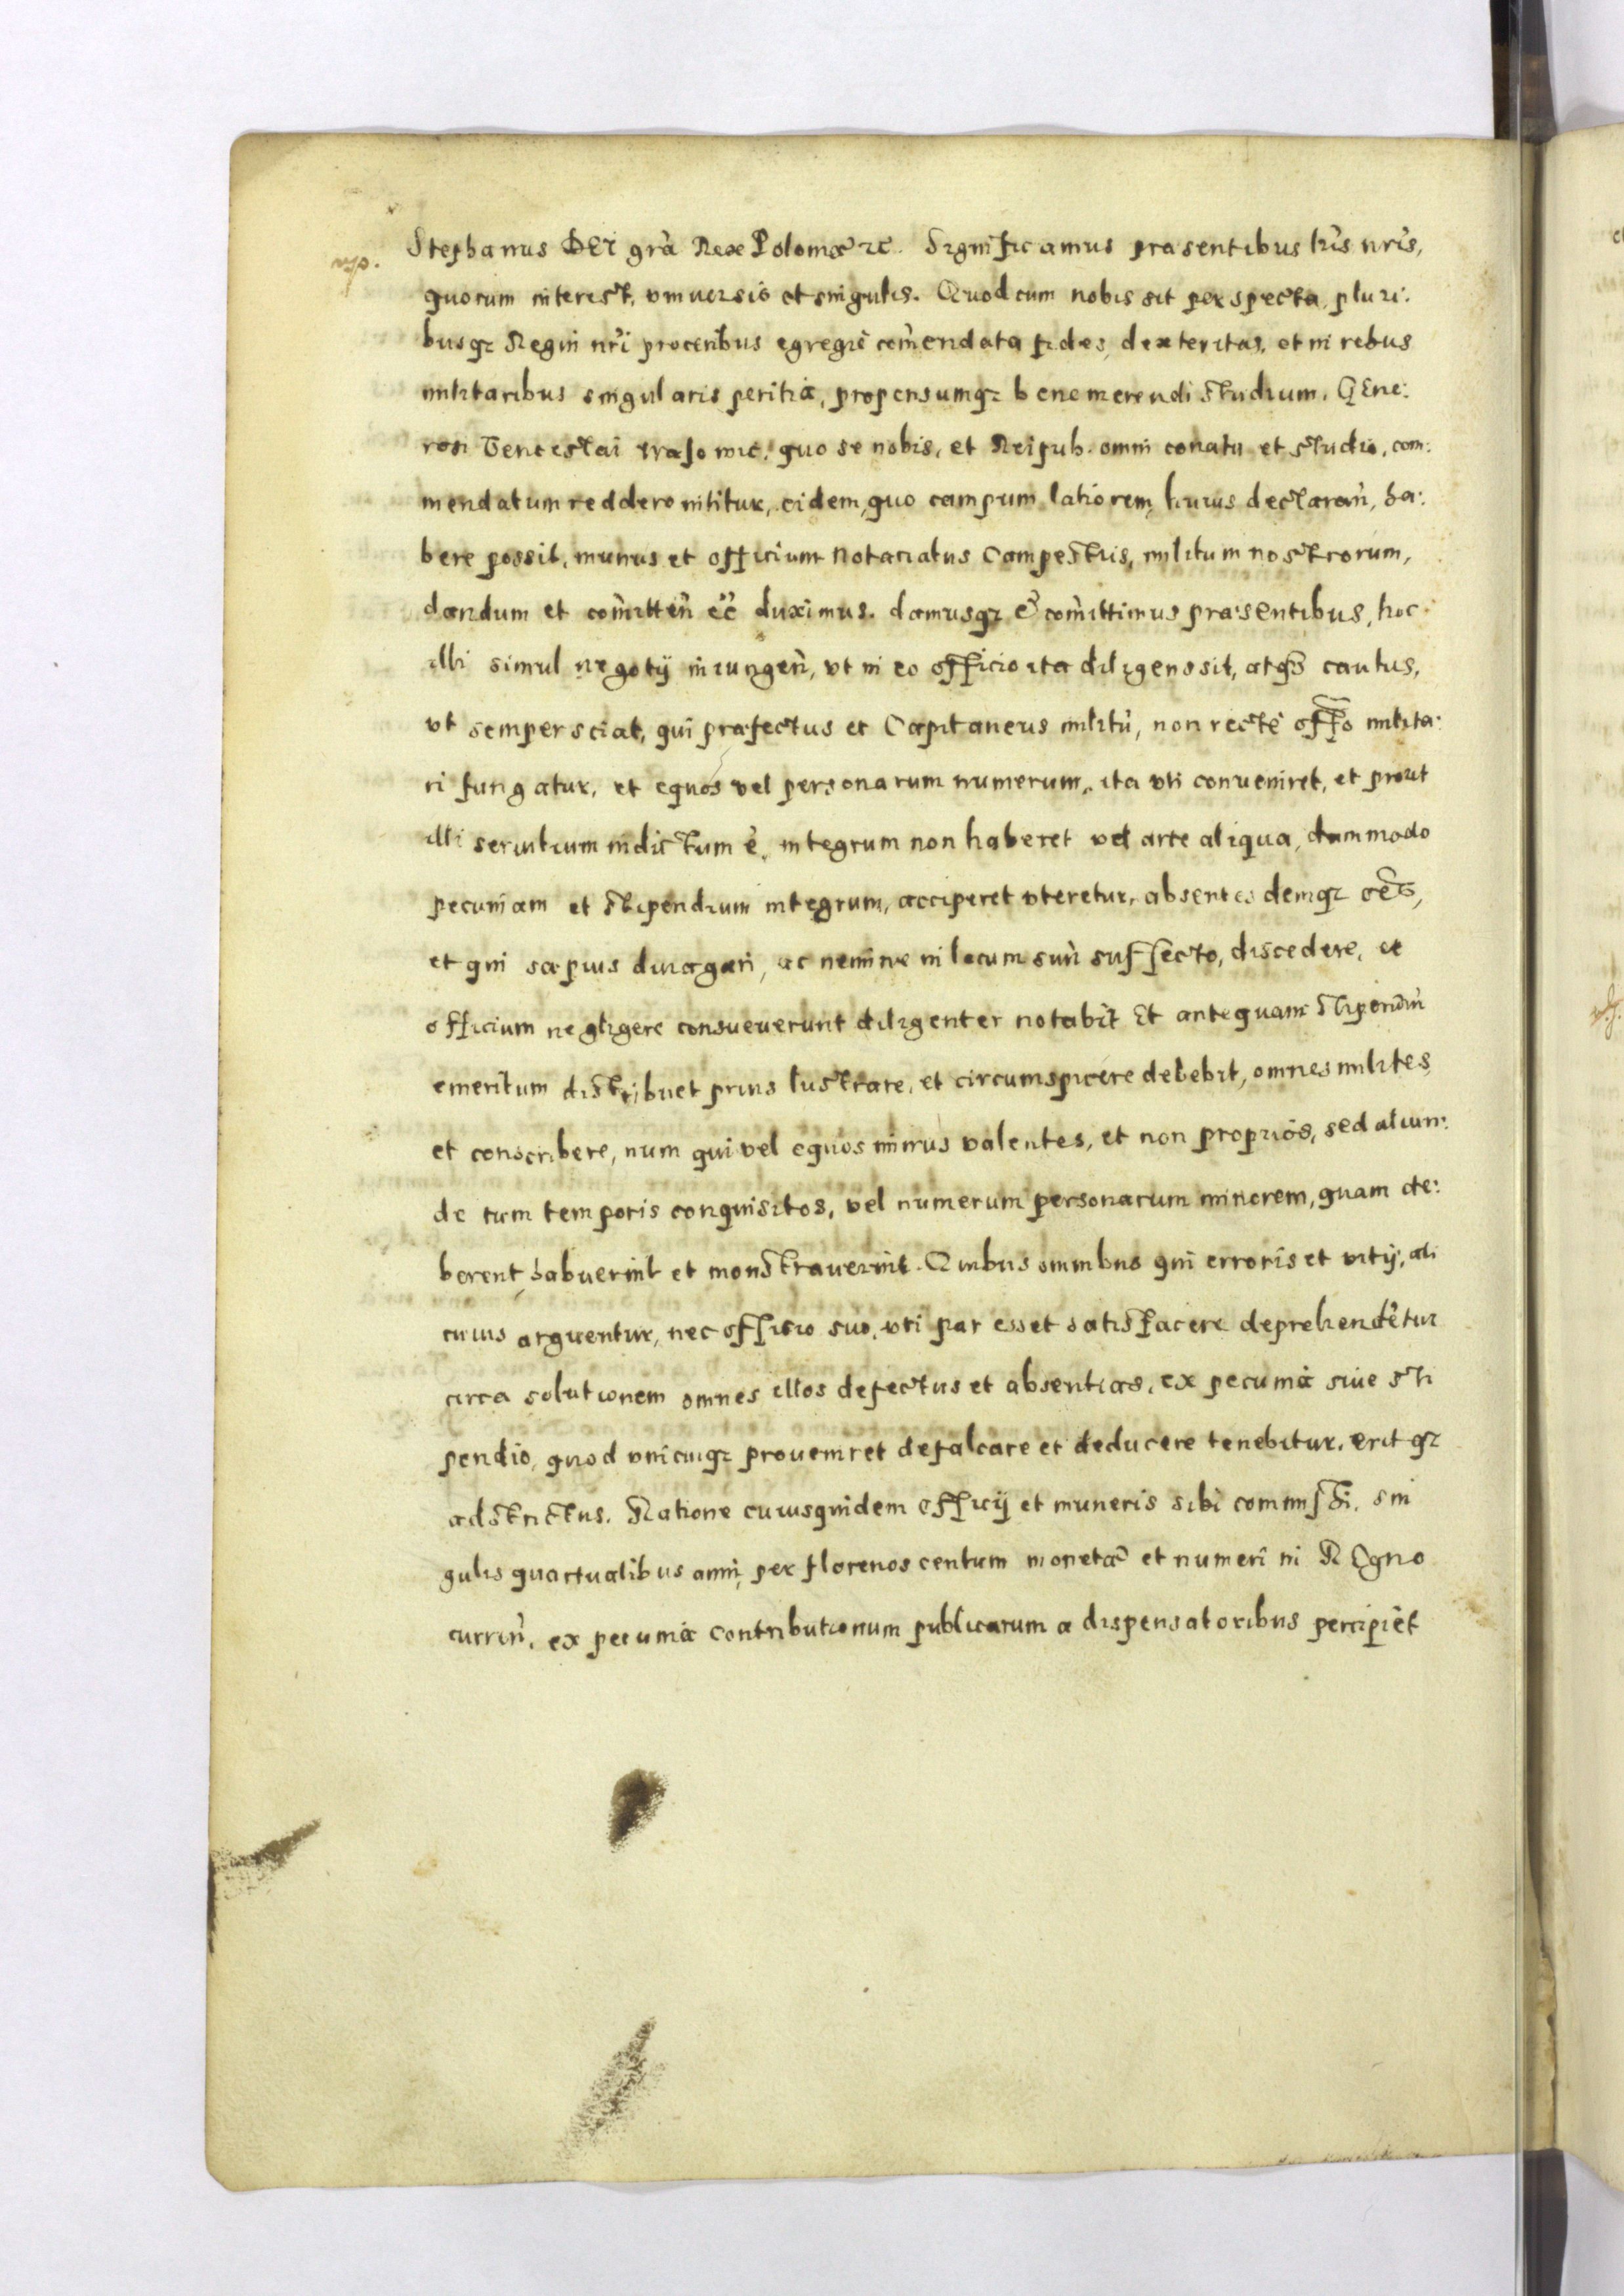 Stephanus DEI grã Rex Poloniæ etc. Significamus præsentibus lris nris,
quorum interest, vniuersis et singulis. Quod cum nobis sit perspecta pluri:
busq3 Regni nri proceribus egregiè com̃endata fides, dexteritas, et in rebus
militaribus singularis peritia, propensumq3 benemerendi studium, GEne:
rosi Venceslai quo se nobis, et Reipub. omni conatu et studio, com:
mendatum reddere nititur, eidem, quo campum latiorem, huius declaran̄, ha:
bere possit, munus et officium Notariatus Campestris, militum nostrorum,
dandum et com̃itten̄ ee͂ duximus. damusq3 et com̃ittimus præsentibus, hoc
illi simul negotij iniungen̄, vt in eo officio ita diligens sit, atq3 cautus,
vt semper sciat, qui præfectus et Capitaneus militũ, non rectè offõ milita:
ri fungatur, et equos vel personarum numerum, ita vti conueniret, et prout
illi seruitium indictum ẽ, integrum non haberet vel arte aliqua, dummodo
pecuniam et stipendium integrum, acciperet vteretur, absentes demq3 oẽs,
et qui sæpius diuagari, ac nemine in locum suũ suffecto, discedere, et
officium negligere consueuerunt diligenter notabit Et antequam stipendiũ
emeritum distribuet prius lustrare, et circumspicere debebit, omnes milites,
et conscribere, num qui vel equos minus valentes, et non proprios, sed aliun:
de tum temporis conquisitos, vel numerum personarum minorem, quam de:
berent, habuerint et monstrauerint. Quibus omnibus qui erroris et vitij, ali
cuius arguentur, nec officio suo, vti par esset satisfacere deprehendẽtur
circa solutionem omnes illos defectus et absentias, ex pecunia siue sti
pendio, quod vnicuiq3 proueniret defalcare et deducere tenebitur, eritq3
adstrictus. Ratione cuiusquidem officij et muneris sibi commissi, sin
gulis quartualibus anni, per florenos centum monetæ et numeri in REgno
currin̄, ex pecunia contributionum publicarum a dispensatoribus percipiet